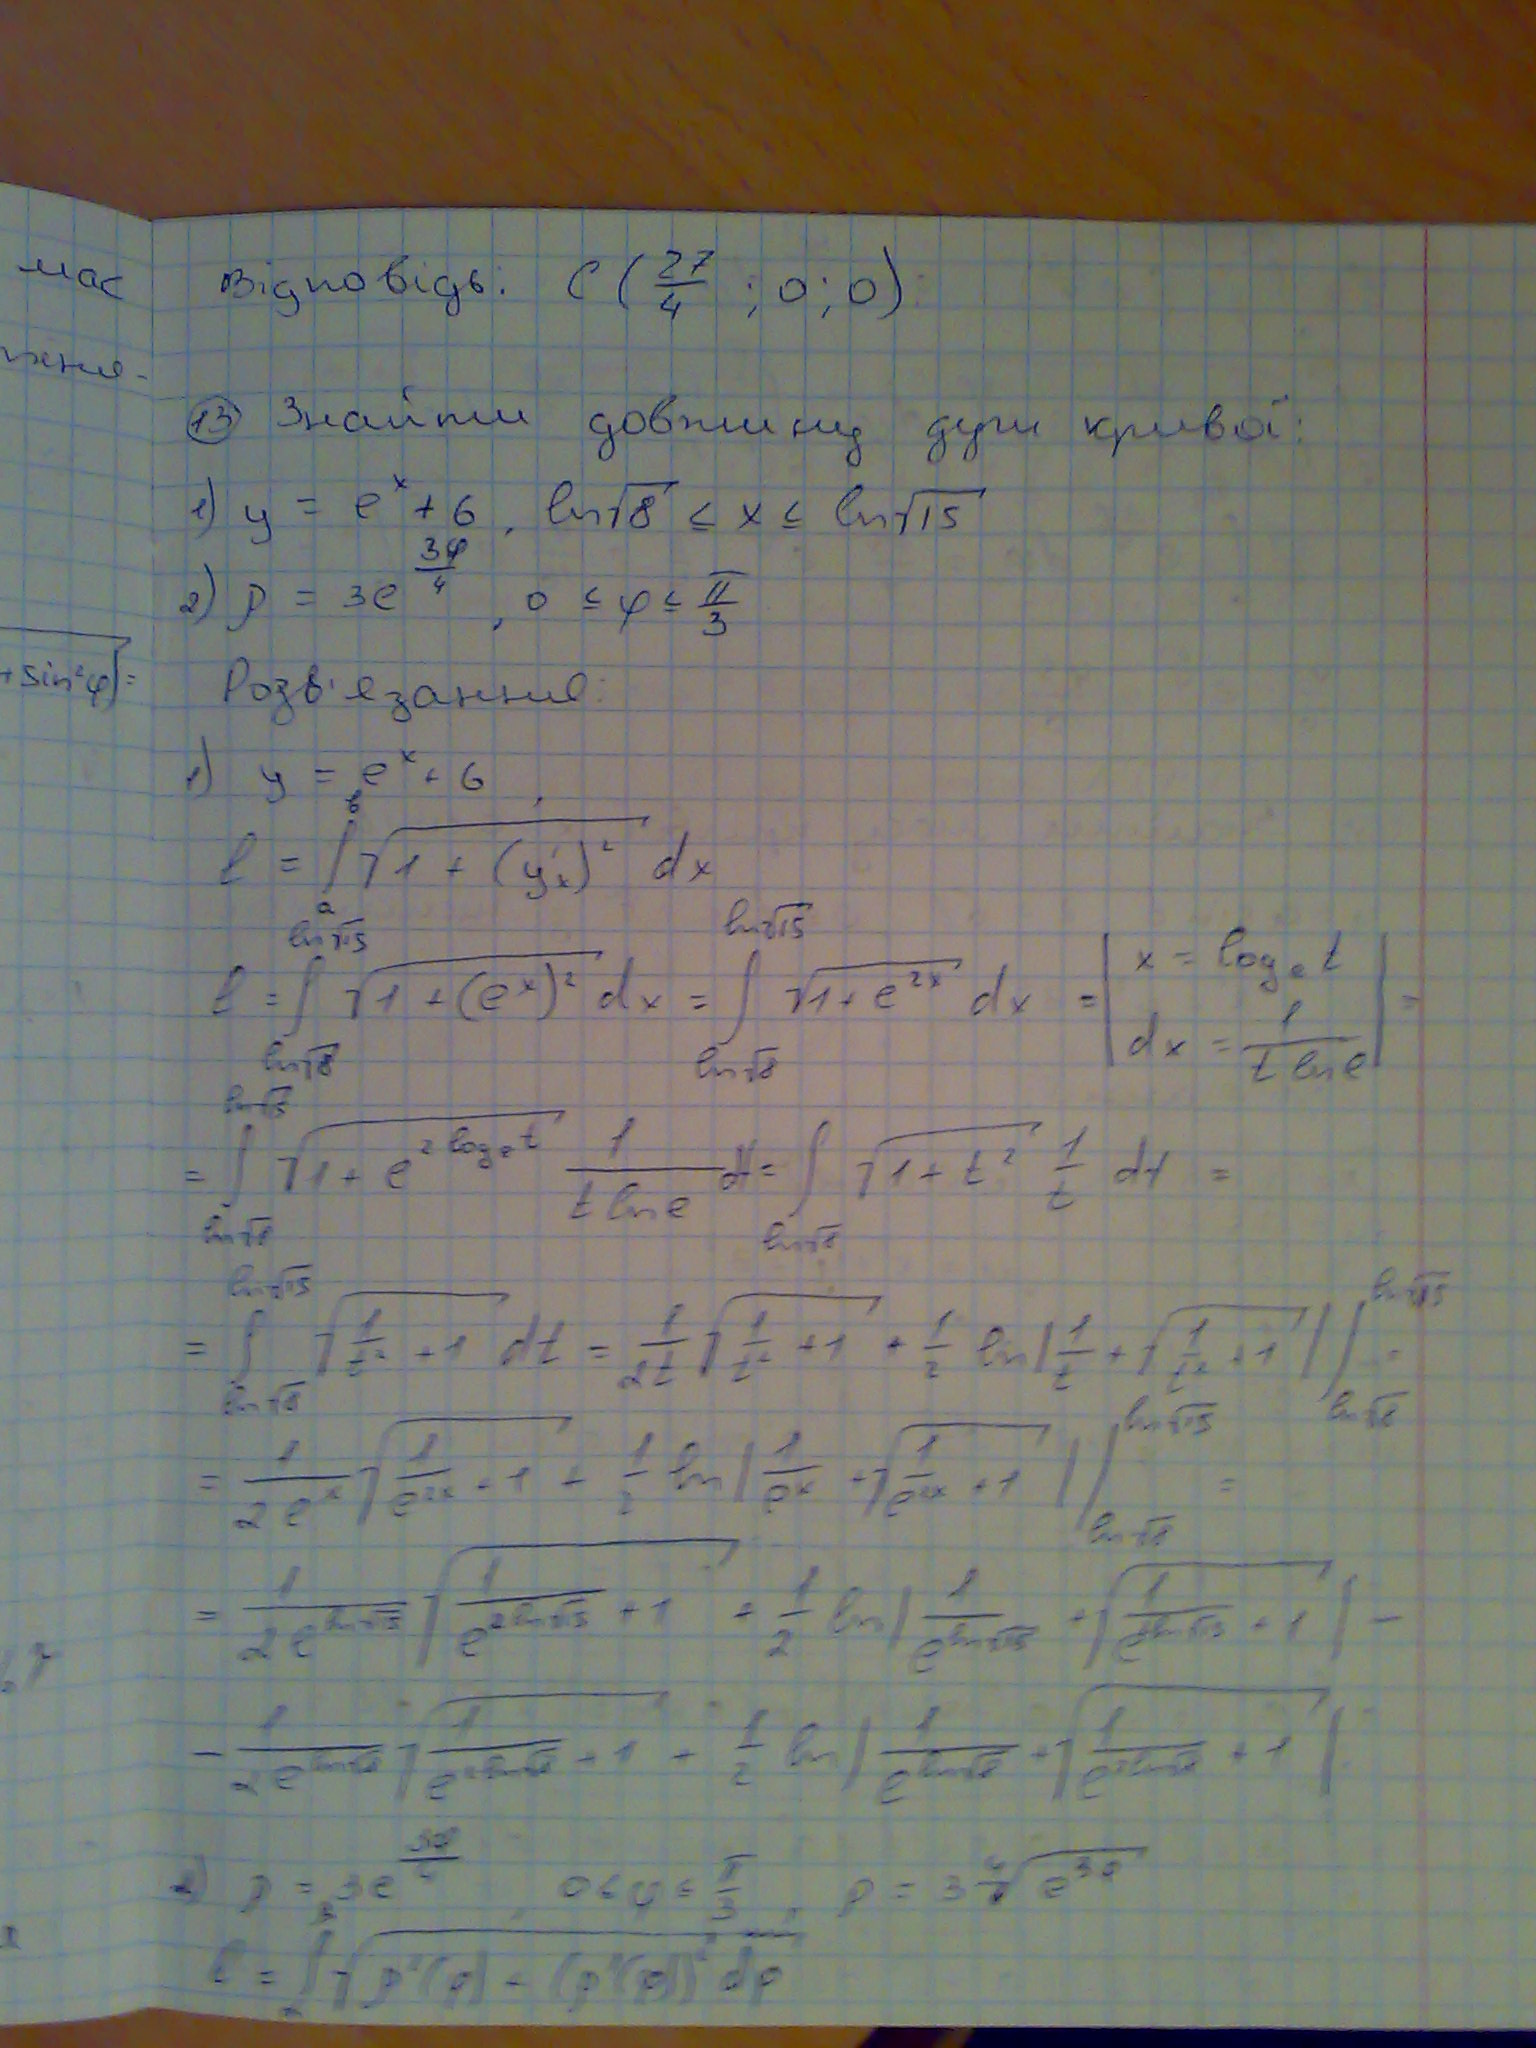 мас
ження-
+ sin²φ) =
Відповідь: C (27/4 ; 0; 0).
13 Знайти довжину дуги кривої:
1) y = e^x + 6, ln√8 ≤ x ≤ ln√15
2) ρ = 3e^(3φ/4), 0 ≤ φ ≤ π/3
Розв'язання:
1) y = e^x + 6,
l = ∫_a^b √(1 + (y'x)²) dx
l = ∫_(ln√8)^(ln√15) √(1 + (e^x)²) dx = ∫_(ln√8)^(ln√15) √(1 + e^(2x)) dx = | x = log_e t dx = 1/(t ln e) | =
= ∫_(ln√8)^(ln√15) √(1 + e^(2 log_e t)) 1/(t ln e) dt = ∫_(ln√8) √(1 + t²) 1/t dt =
= ∫_(ln√8)^(ln√15) √(1/t² + 1) dt = 1/(2t) √(1/t² + 1) + 1/2 ln|1/t + √(1/t² + 1)| |_(ln√8)^(ln√15) =
= 1/(2e^x) √(1/e^(2x) + 1) + 1/2 ln|1/e^x + √(1/e^(2x) + 1)| |_(ln√8)^(ln√15) =
= 1/(2e^(ln√15)) √(1/e^(2ln√15) + 1) + 1/2 ln|1/e^(ln√15) + √(1/e^(2ln√15) + 1)| -
- 1/(2e^(ln√8)) √(1/e^(2ln√8) + 1) + 1/2 ln|1/e^(ln√8) + √(1/e^(2ln√8) + 1)|
2) ρ = 3e^(3φ/4), 0 ≤ φ ≤ π/3, ρ = 3 ⁴√(e^(3φ))
l = ∫ √(ρ²(φ) + (ρ'(φ))²) dφ